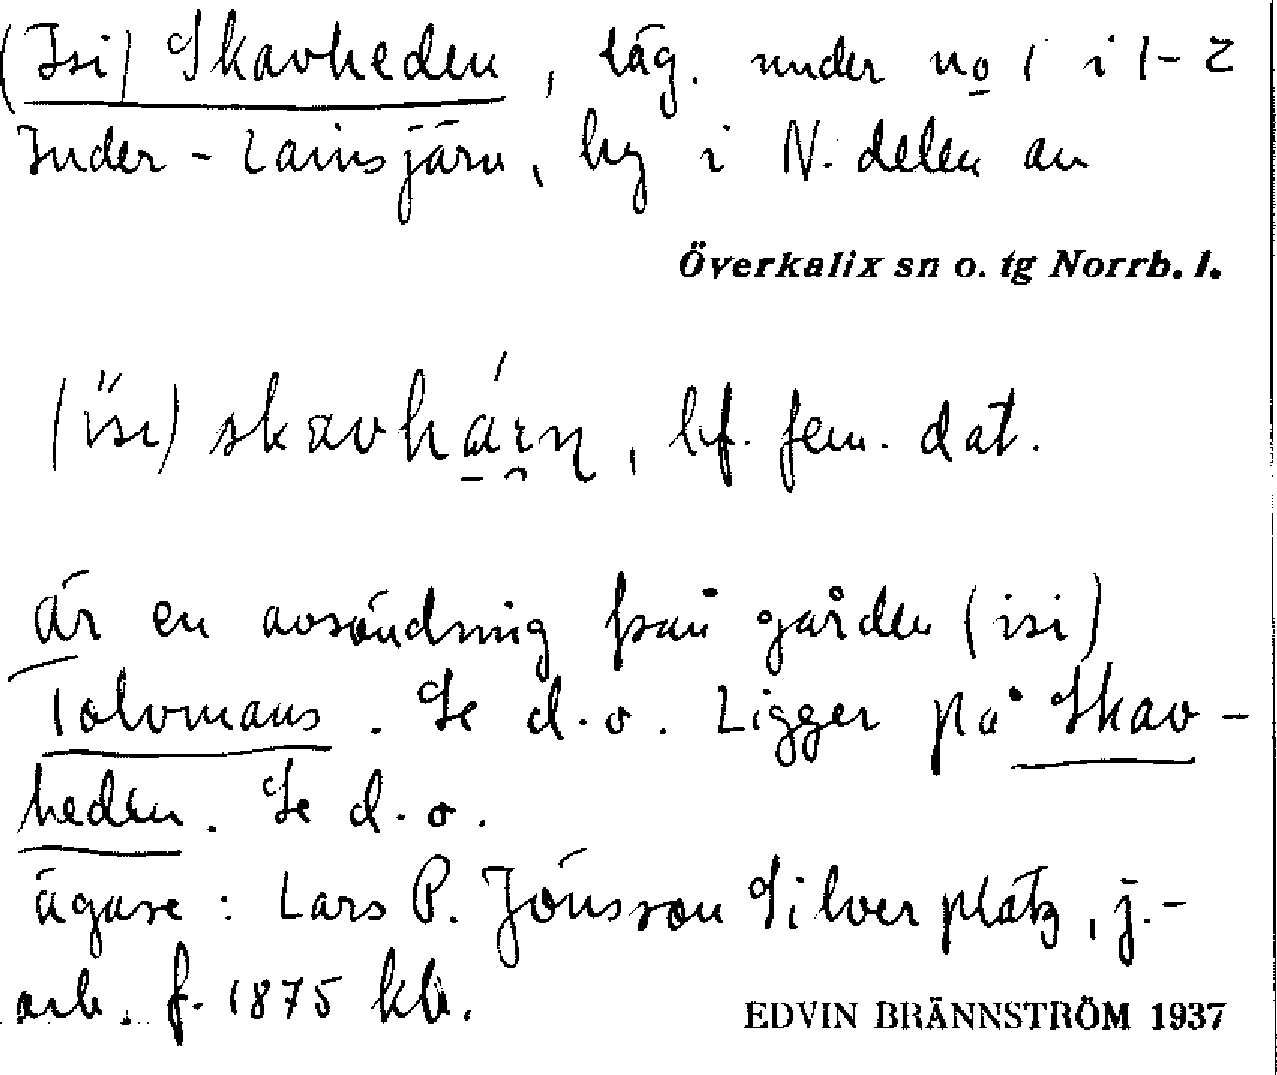 (Isi) Skavheden, läg. under no 1 i 1-2
Inder-Lainsjärn, by i N. delen av
Överkalix sn o. tg Norrb. l.
(isi) skavhärn, bf. fem. dat.
är en avsöndring från gården (isi)
Tolvmans. Se d.o. Ligger på Skav-
heden. Se d.o.
ägare: Lars P. Jönsson Silverplatz, j.-
arb. f. 1875 kb.
EDVIN BRÄNNSTRÖM 1937